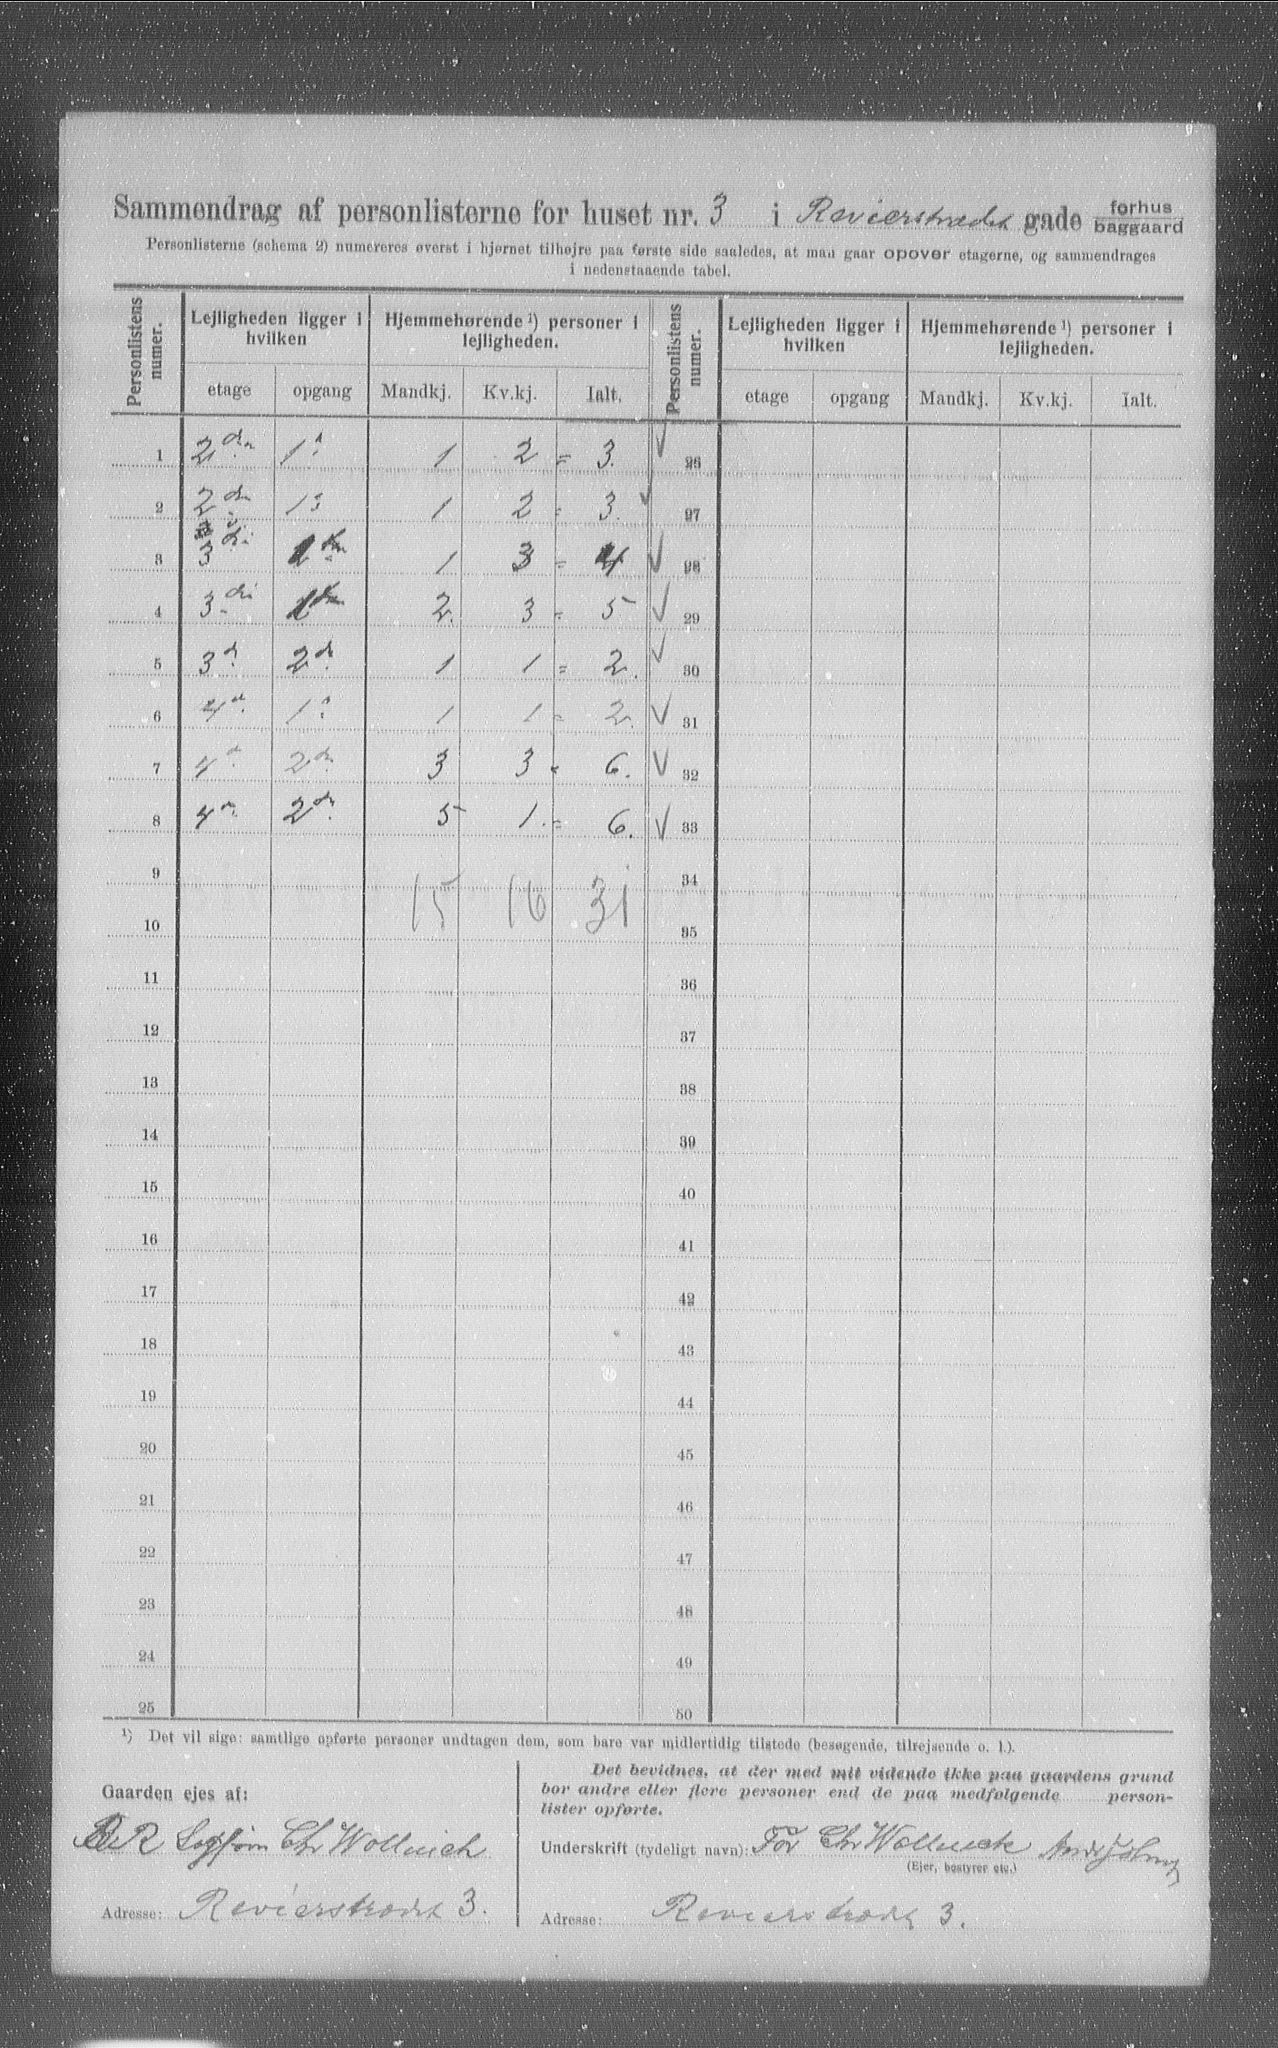 Sammendrag af personlisterne for huset nr. 3 i Revierstrædet gade forhus baggaard
Personlisterne (schema 2) numereres øverst i hjørnet tilhøjre paa første side saaledes, at man gaar opover etagerne, og sammendrages
i nedenstaaende tabel.
Personlistens numer. Lejligheden ligger i hvilken Hjemmehørende ¹) personer i lejligheden. Personlistens numer. Lejligheden ligger i hvilken Hjemmehørende ¹) personer i lejligheden.
etage opgang Mandkj. Kv.kj. Ialt. etage opgang Mandkj. Kv.kj. Ialt.
1 2den 1s 1 2 = 3. 26
2 2den 1s 1 2 = 3. 27
3 3di 1 3 = 4 28
4 3di 2. 3 = 5 29
5 3d. 2d. 1 1 = 2. 30
6 4d. 1s 1 1 = 2. 31
7 4d. 2dn. 3 3 = 6. 32
8 4d. 2dn. 5 1. = 6. 33
9 15 16 31 34
10 35
11 36
12 37
13 38
14 39
15 40
16 41
17 42
18 43
19 44
20 45
21 46
22 47
23 48
24 49
25 50
¹) Det vil sige: samtlige opførte personer undtagen dem, som bare var midlertidig tilstede (besøgende, tilrejsende o. l.).
Gaarden ejes af:
Chr Wollnick
Adresse: Revierstrædet 3.
Det bevidnes, at der med mit vidende ikke paa gaardens grund
bor andre eller flere personer end de paa medfølgende person-
lister opførte.
Underskrift (tydeligt navn): For Chr Wollnick
(Ejer, bestyrer etc.)
Adresse: Revierstrædet 3.